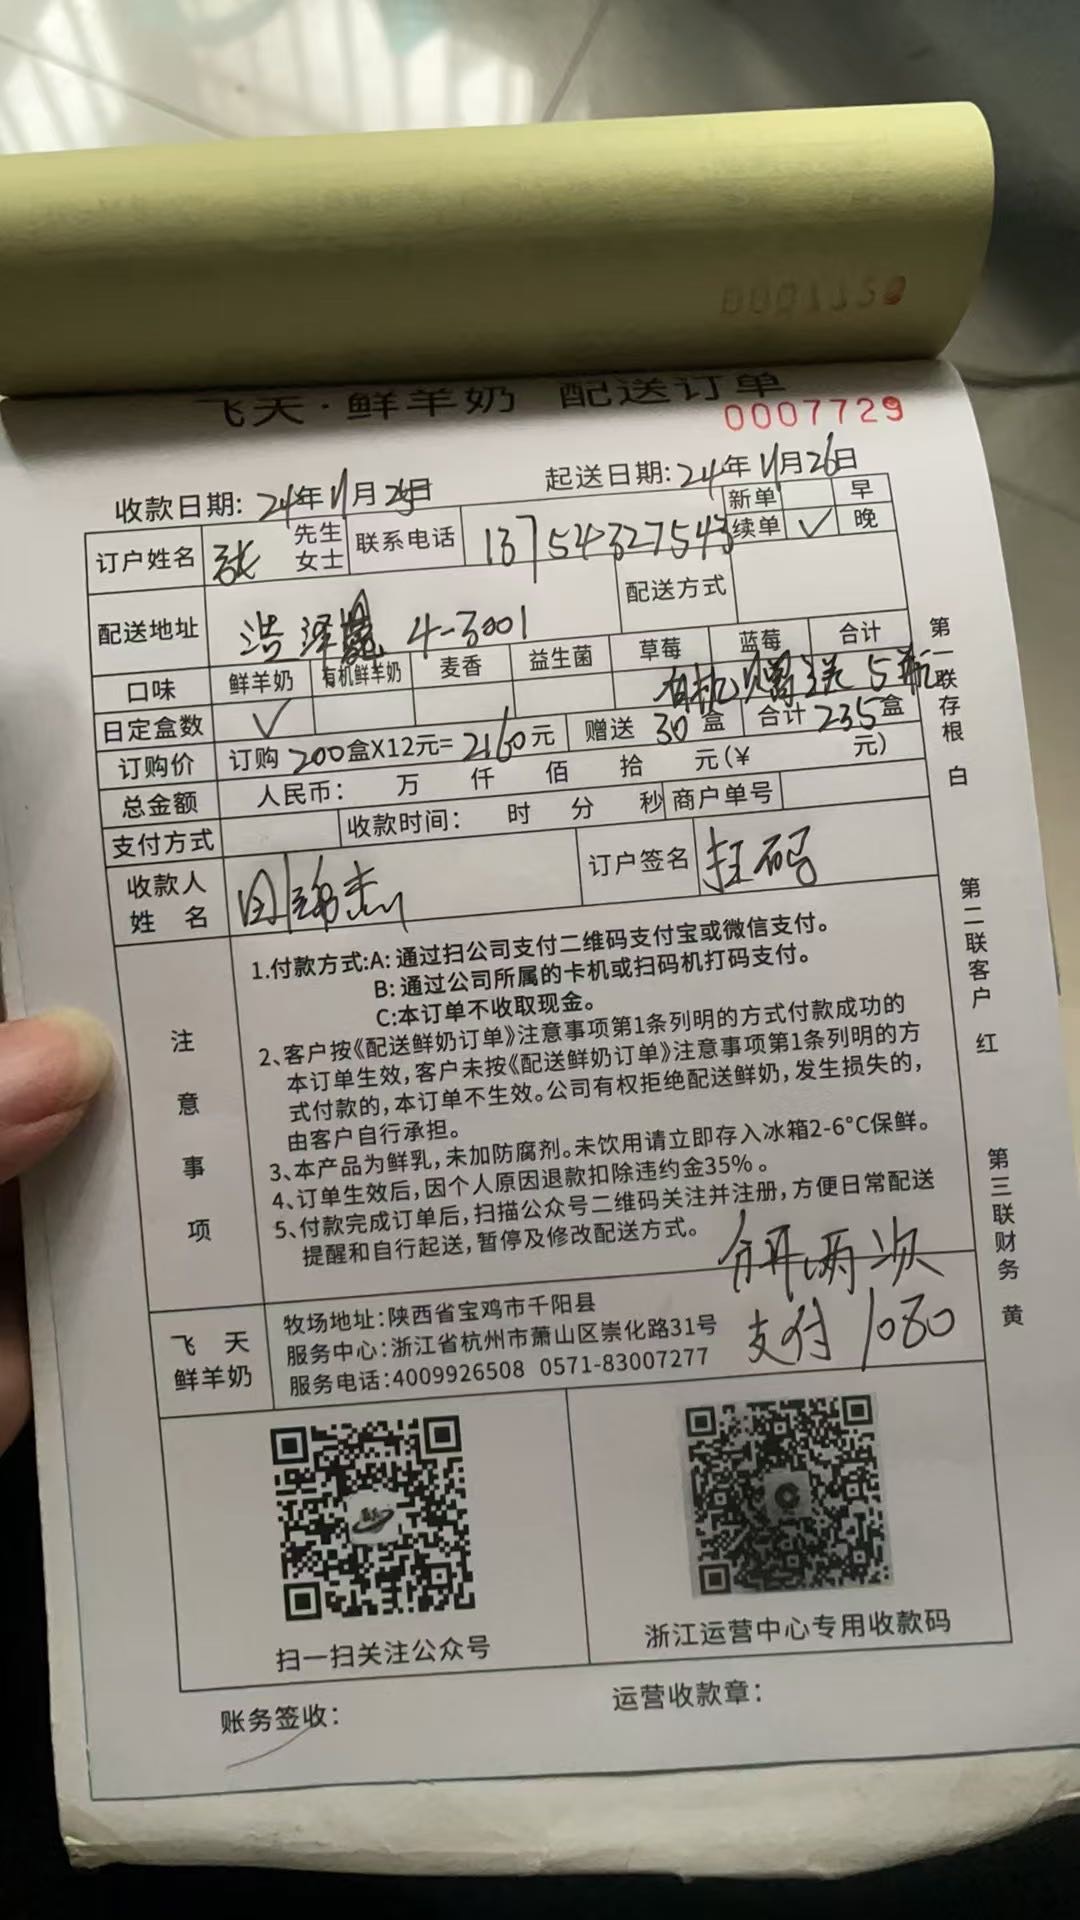 飞天·鲜羊奶 配送订单
0007729
收款日期: 24年11月25日 起送日期: 24年11月26日
订户姓名 张 先生 女士 联系电话 13754327543 新单 早
续单 ✓ 晚
配送地址 浩泽 4-3001 配送方式
口味 鲜羊奶 有机鲜羊奶 麦香 益生菌 草莓 蓝莓 合计
日定盒数 ✓ 有机赠送5瓶
订购价 订购200盒X12元=2160元 赠送30盒 合计235盒
总金额 人民币: 万 仟 佰 拾 元(¥ 元)
支付方式 收款时间: 时 分 秒 商户单号
收款人姓名 订户签名 扫码
注意事项
1.付款方式:A: 通过扫公司支付二维码支付宝或微信支付。
B: 通过公司所属的卡机或扫码机打码支付。
C:本订单不收取现金。
2、客户按《配送鲜奶订单》注意事项第1条列明的方式付款成功的
本订单生效,客户未按《配送鲜奶订单》注意事项第1条列明的方
式付款的,本订单不生效。公司有权拒绝配送鲜奶,发生损失的,
由客户自行承担。
3、本产品为鲜乳,未加防腐剂。未饮用请立即存入冰箱2-6°C保鲜。
4、订单生效后,因个人原因退款扣除违约金35%。
5、付款完成订单后,扫描公众号二维码关注并注册,方便日常配送
提醒和自行起送,暂停及修改配送方式。
分开两次
支付1080
飞天鲜羊奶
牧场地址:陕西省宝鸡市千阳县
服务中心:浙江省杭州市萧山区崇化路31号
服务电话:4009926508 0571-83007277
扫一扫关注公众号
浙江运营中心专用收款码
账务签收:
运营收款章:
第一联存根 白
第二联客户 红
第三联财务 黄